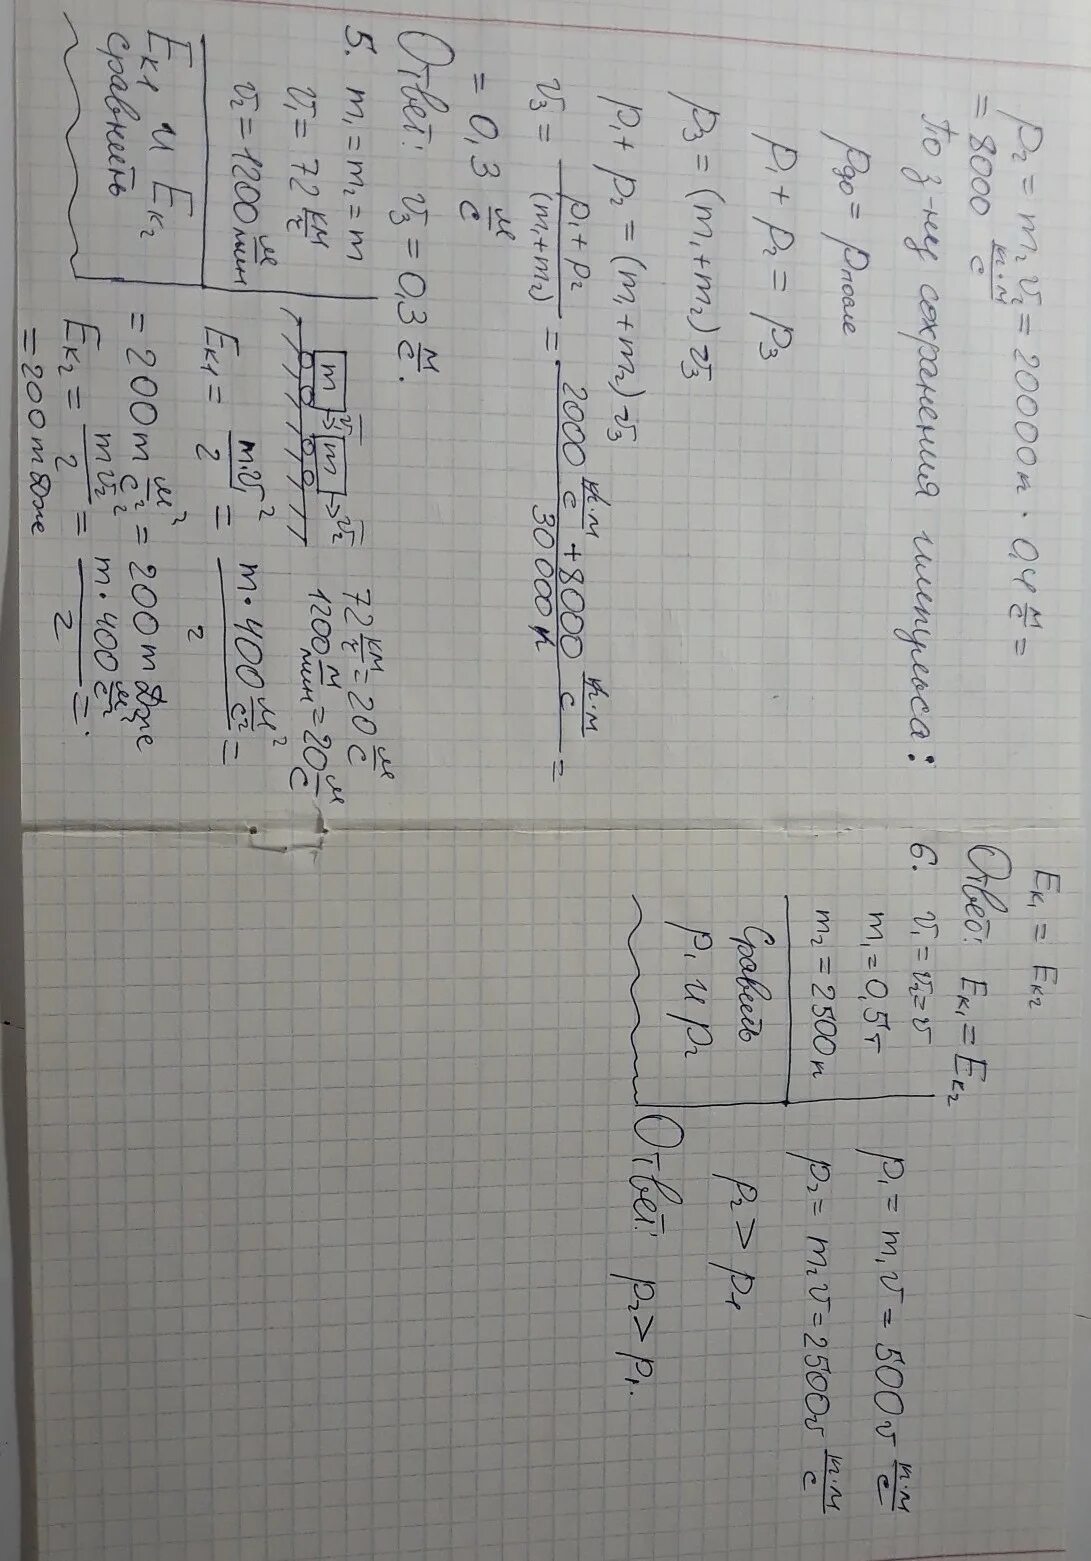 p₂ = m₂v₂ = 20000кг · 0,4 м/с =
= 8000 кг·м/с
По з-ну сохранения импульса:
pдо = pпосле
p₁ + p₂ = p₃
p₃ = (m₁+m₂)v₃
p₁ + p₂ = (m₁ + m₂)·v₃
v₃ = (p₁ + p₂)/(m₁+m₂) = (2000 кг·м/с + 8000 кг·м/с)/30000кг =
= 0,3 м/с
Ответ: v₃ = 0,3 м/с.
5. m₁ = m₂ = m
v₁ = 72 км/ч
v₂ = 1200 м/мин
сравнить
Eк₁ и Eк₂
m v₁ m v₂
72 км/ч = 20 м/с
1200 м/мин = 20 м/с
Eк₁ = m·v₁²/2 = m·400 м²/с²/2 =
= 200m м²/с² = 200m Дж
Eк₂ = mv₂²/2 = m·400 м²/с²/2 =
= 200m Дж
Eк₁ = Eк₂
Ответ: Eк₁ = Eк₂
6. v₁ = v₂ = v
m₁ = 0,5т
m₂ = 2500кг
Сравнить
p₁ и p₂
p₁ = m₁v = 500v кг·м/с
p₂ = m₂v = 2500v кг·м/с
p₂ > p₁
Ответ: p₂ > p₁.